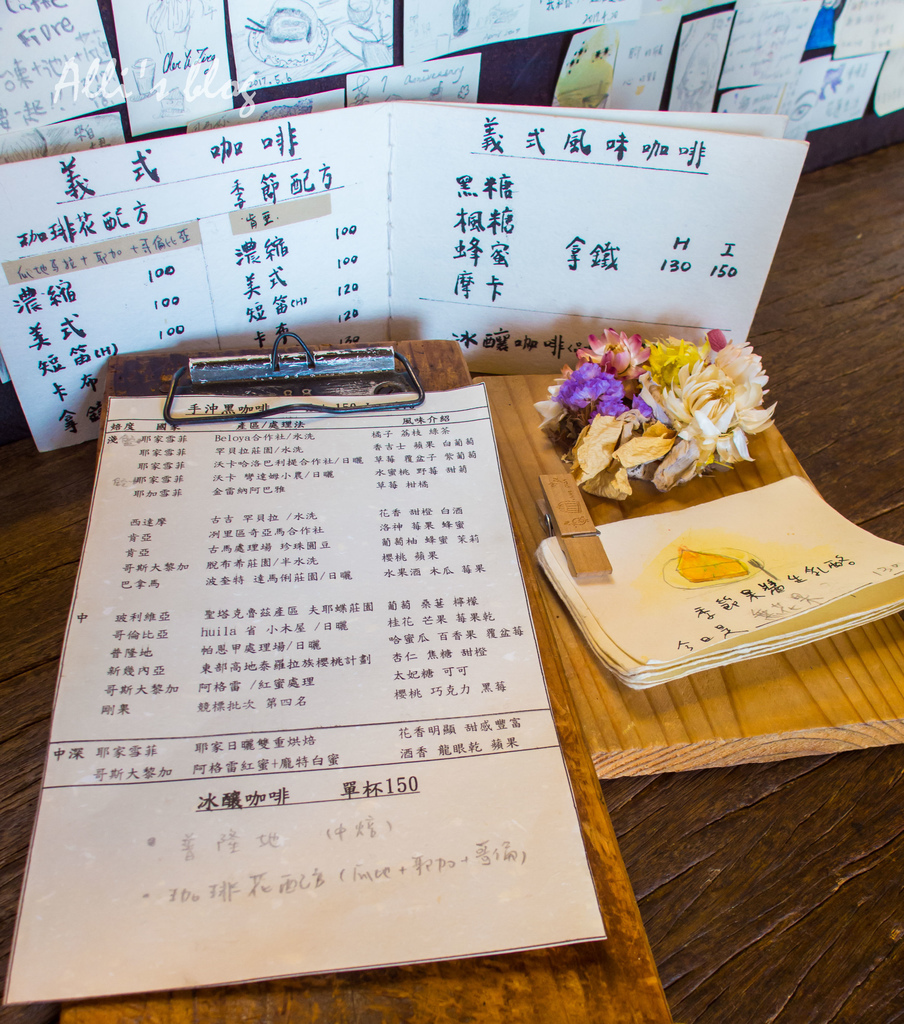 Alli's blog
2017.5.6
義式咖啡
珈琲花配方
瓜地馬拉+耶加+哥倫比亞
濃縮 100
美式 100
短笛(H) 100
卡布
拿鐵
季節配方
肯亞
濃縮 100
美式 100
短笛(H) 120
卡布 120
130
義式風味咖啡
黑糖
楓糖
蜂蜜 拿鐵 H 130 I 150
摩卡
冰釀咖啡
手沖黑咖啡
焙度 國家 產區/處理法 風味介紹
淺 耶家雪菲 Beloya合作社/水洗 橘子 荔枝 綠茶
耶家雪菲 罕貝拉莊園/水洗 香吉士 蘋果 白葡萄
耶家雪菲 沃卡哈洛巴利提合作社/日曬 草莓 覆盆子 紫葡萄
耶家雪菲 沃卡 彎達姆小農/日曬 水蜜桃 野莓 甜菊
耶加雪菲 金雷納阿巴雅 草莓 柑橘
西達摩 古吉 罕貝拉 /水洗 花香 甜橙 白酒
肯亞 冽里區奇亞馬合作社 洛神 莓果 蜂蜜
肯亞 古馬處理場 珍珠圓豆 葡萄柚 蜂蜜 茉莉
哥斯大黎加 脫布希莊園/半水洗 櫻桃 蘋果
巴拿馬 波奎特 達馬俐莊園/日曬 水果酒 木瓜 莓果
中 玻利維亞 聖塔克魯茲產區 夫耶蝶莊園 葡萄 桑葚 檸檬
哥倫比亞 huila 省 小木屋 /日曬 桂花 芒果 莓果乾
普隆地 帕恩甲處理場/日曬 哈蜜瓜 百香果 覆盆莓
新幾內亞 東部高地泰羅拉族櫻桃計劃 杏仁 焦糖 甜橙
哥斯大黎加 阿格雷 /紅蜜處理 太妃糖 可可
剛果 競標批次 第四名 櫻桃 巧克力 黑莓
中深 耶家雪菲 耶家日曬雙重烘焙 花香明顯 甜感豐富
哥斯大黎加 阿格雷紅蜜+龐特白蜜 酒香 龍眼乾 蘋果
冰釀咖啡 單杯150
普隆地 (中焙)
珈琲花配方(瓜地+耶加+哥倫)
季節果醬生乳酪
今日是 無花果